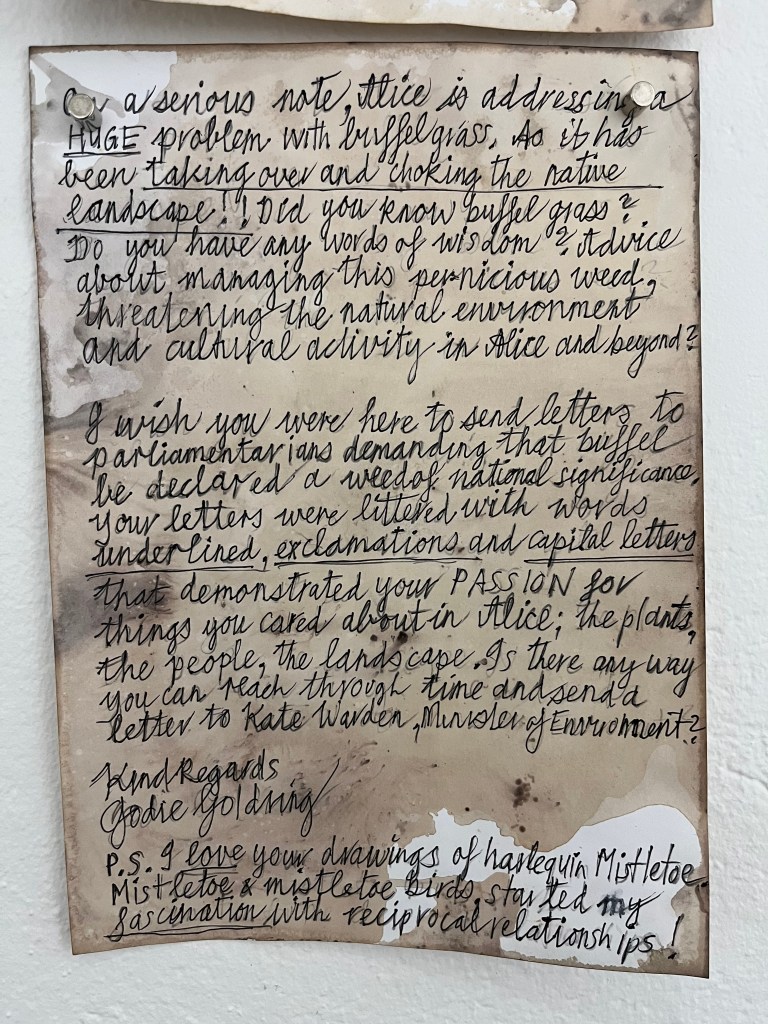 On a serious note, Alice is addressing a
HUGE problem with buffel grass. As it has
been taking over and choking the native
landscape!! Did you know buffel grass?
Do you have any words of wisdom? Advice
about managing this pernicious weed,
threatening the natural environment
and cultural activity in Alice and beyond?
I wish you were here to send letters to
parliamentarians demanding that buffel
be declared a weed of national significance.
Your letters were littered with words
underlined, exclamations and capital letters
that demonstrated your PASSION for
things you cared about in Alice; the plants,
the people, the landscape. Is there any way
you can reach through time and send a
letter to Kate Warden, Minister of Enviroment?
Kind Regards
Jodie Goldring
P.S. I love your drawings of harlequin Mistletoe.
Mistletoe & mistletoe birds started my
fascination with reciprocal relationships!